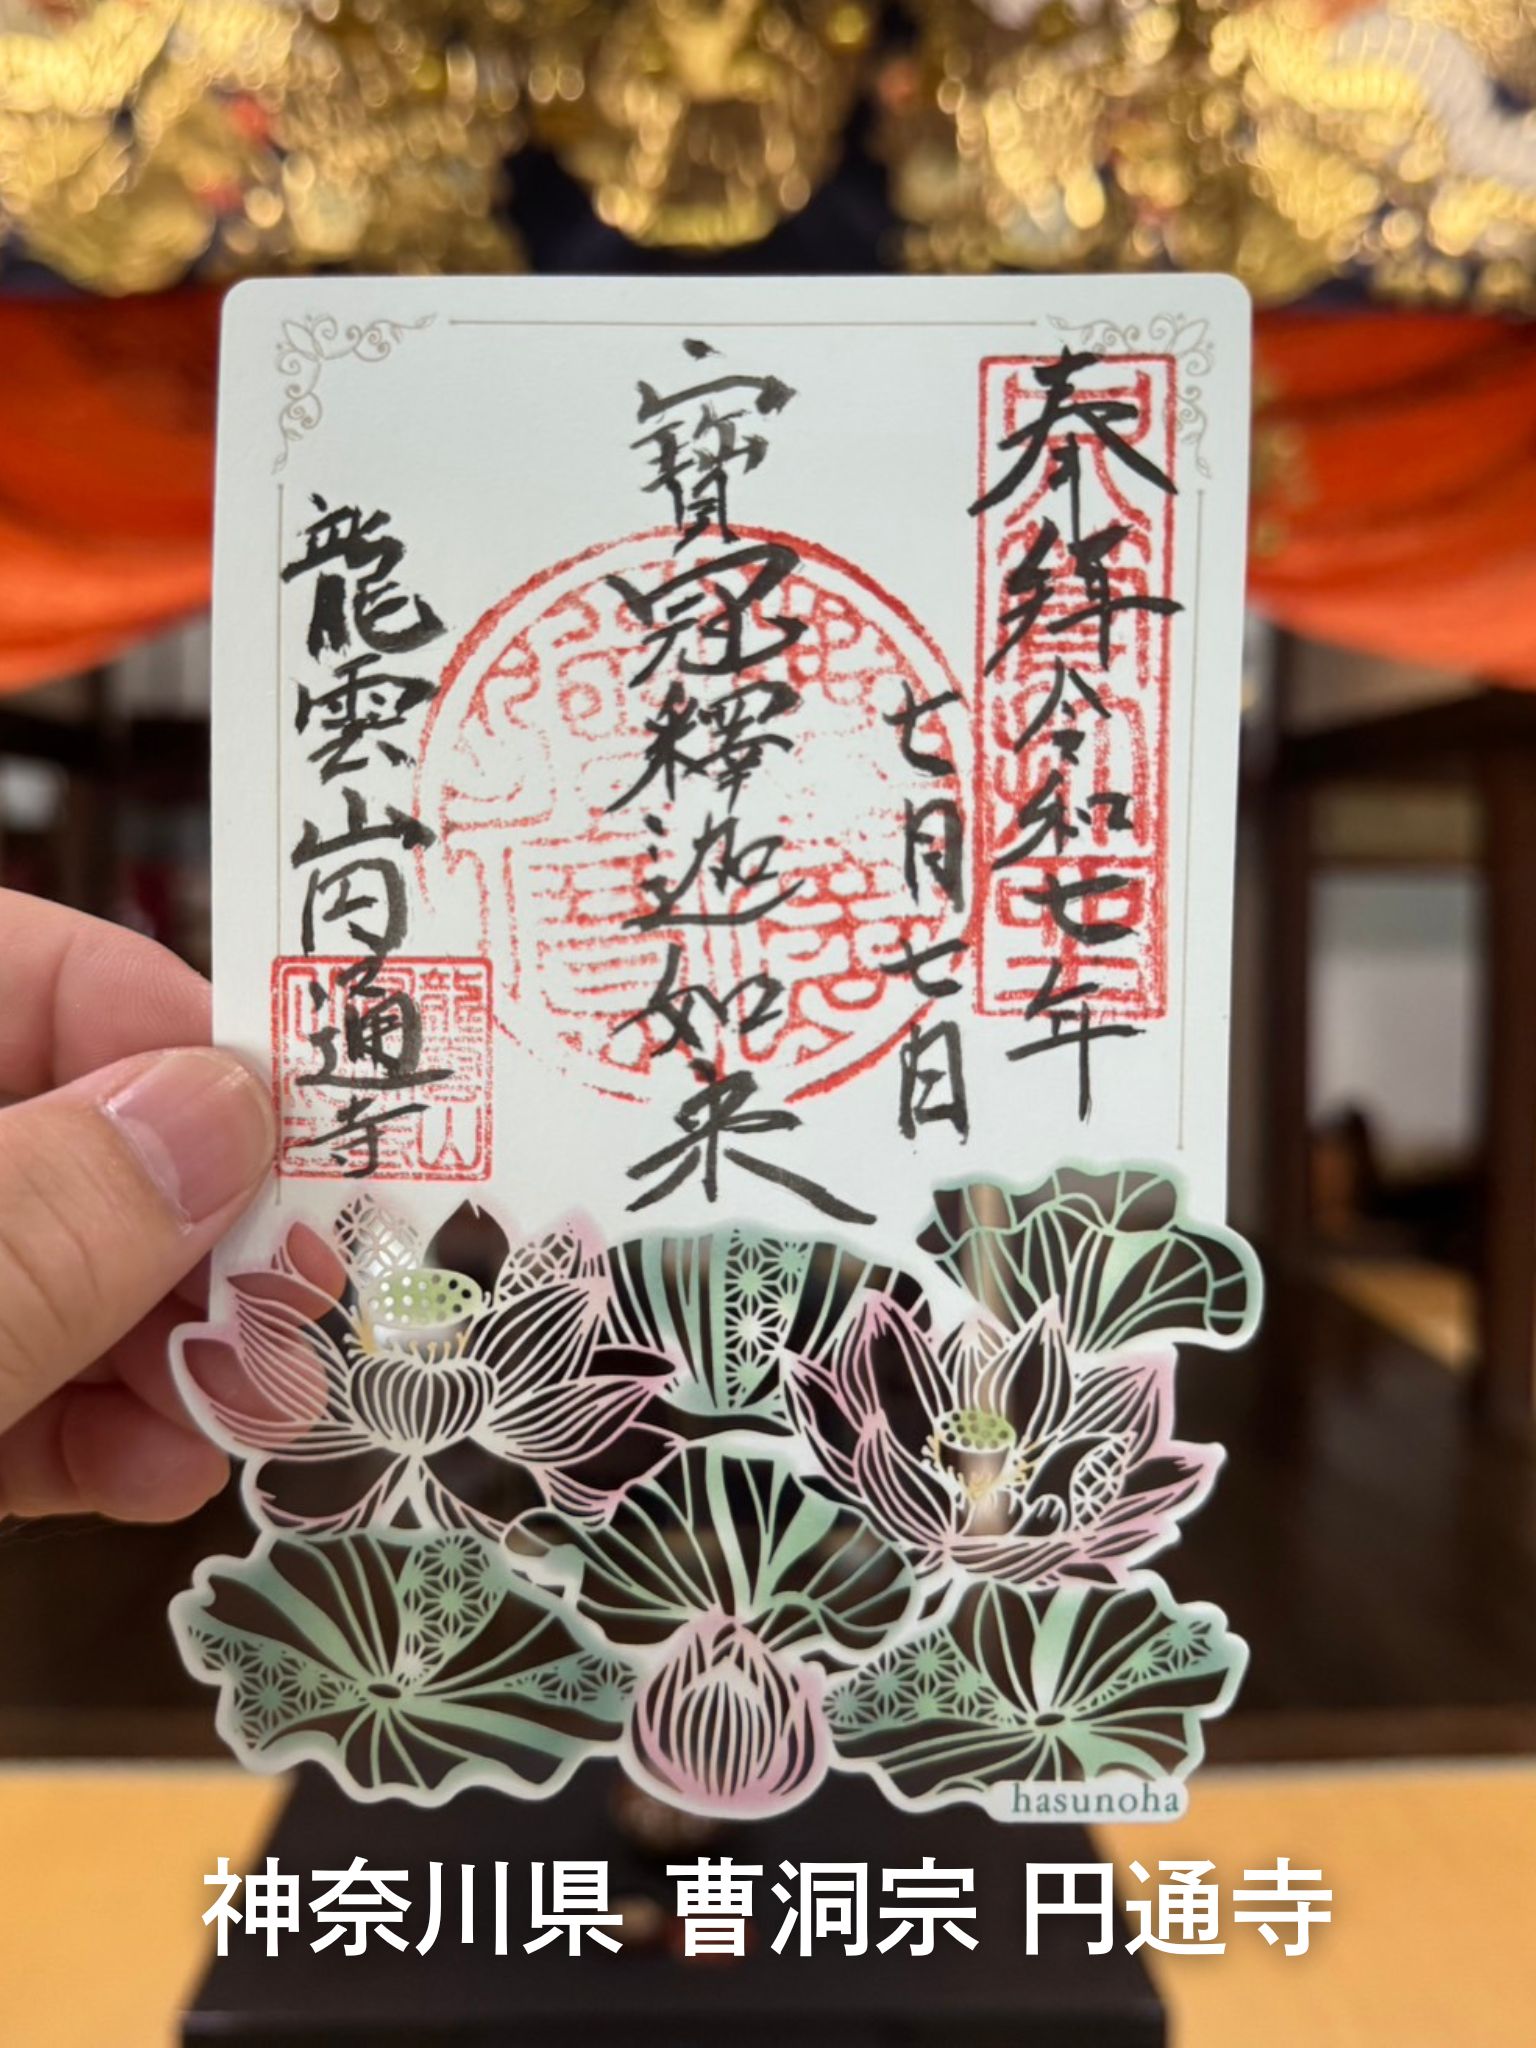 奉拝 令和七年
七月七日
寶冠釋迦如来
龍雲山円通寺
hasunoha
神奈川県 曹洞宗 円通寺